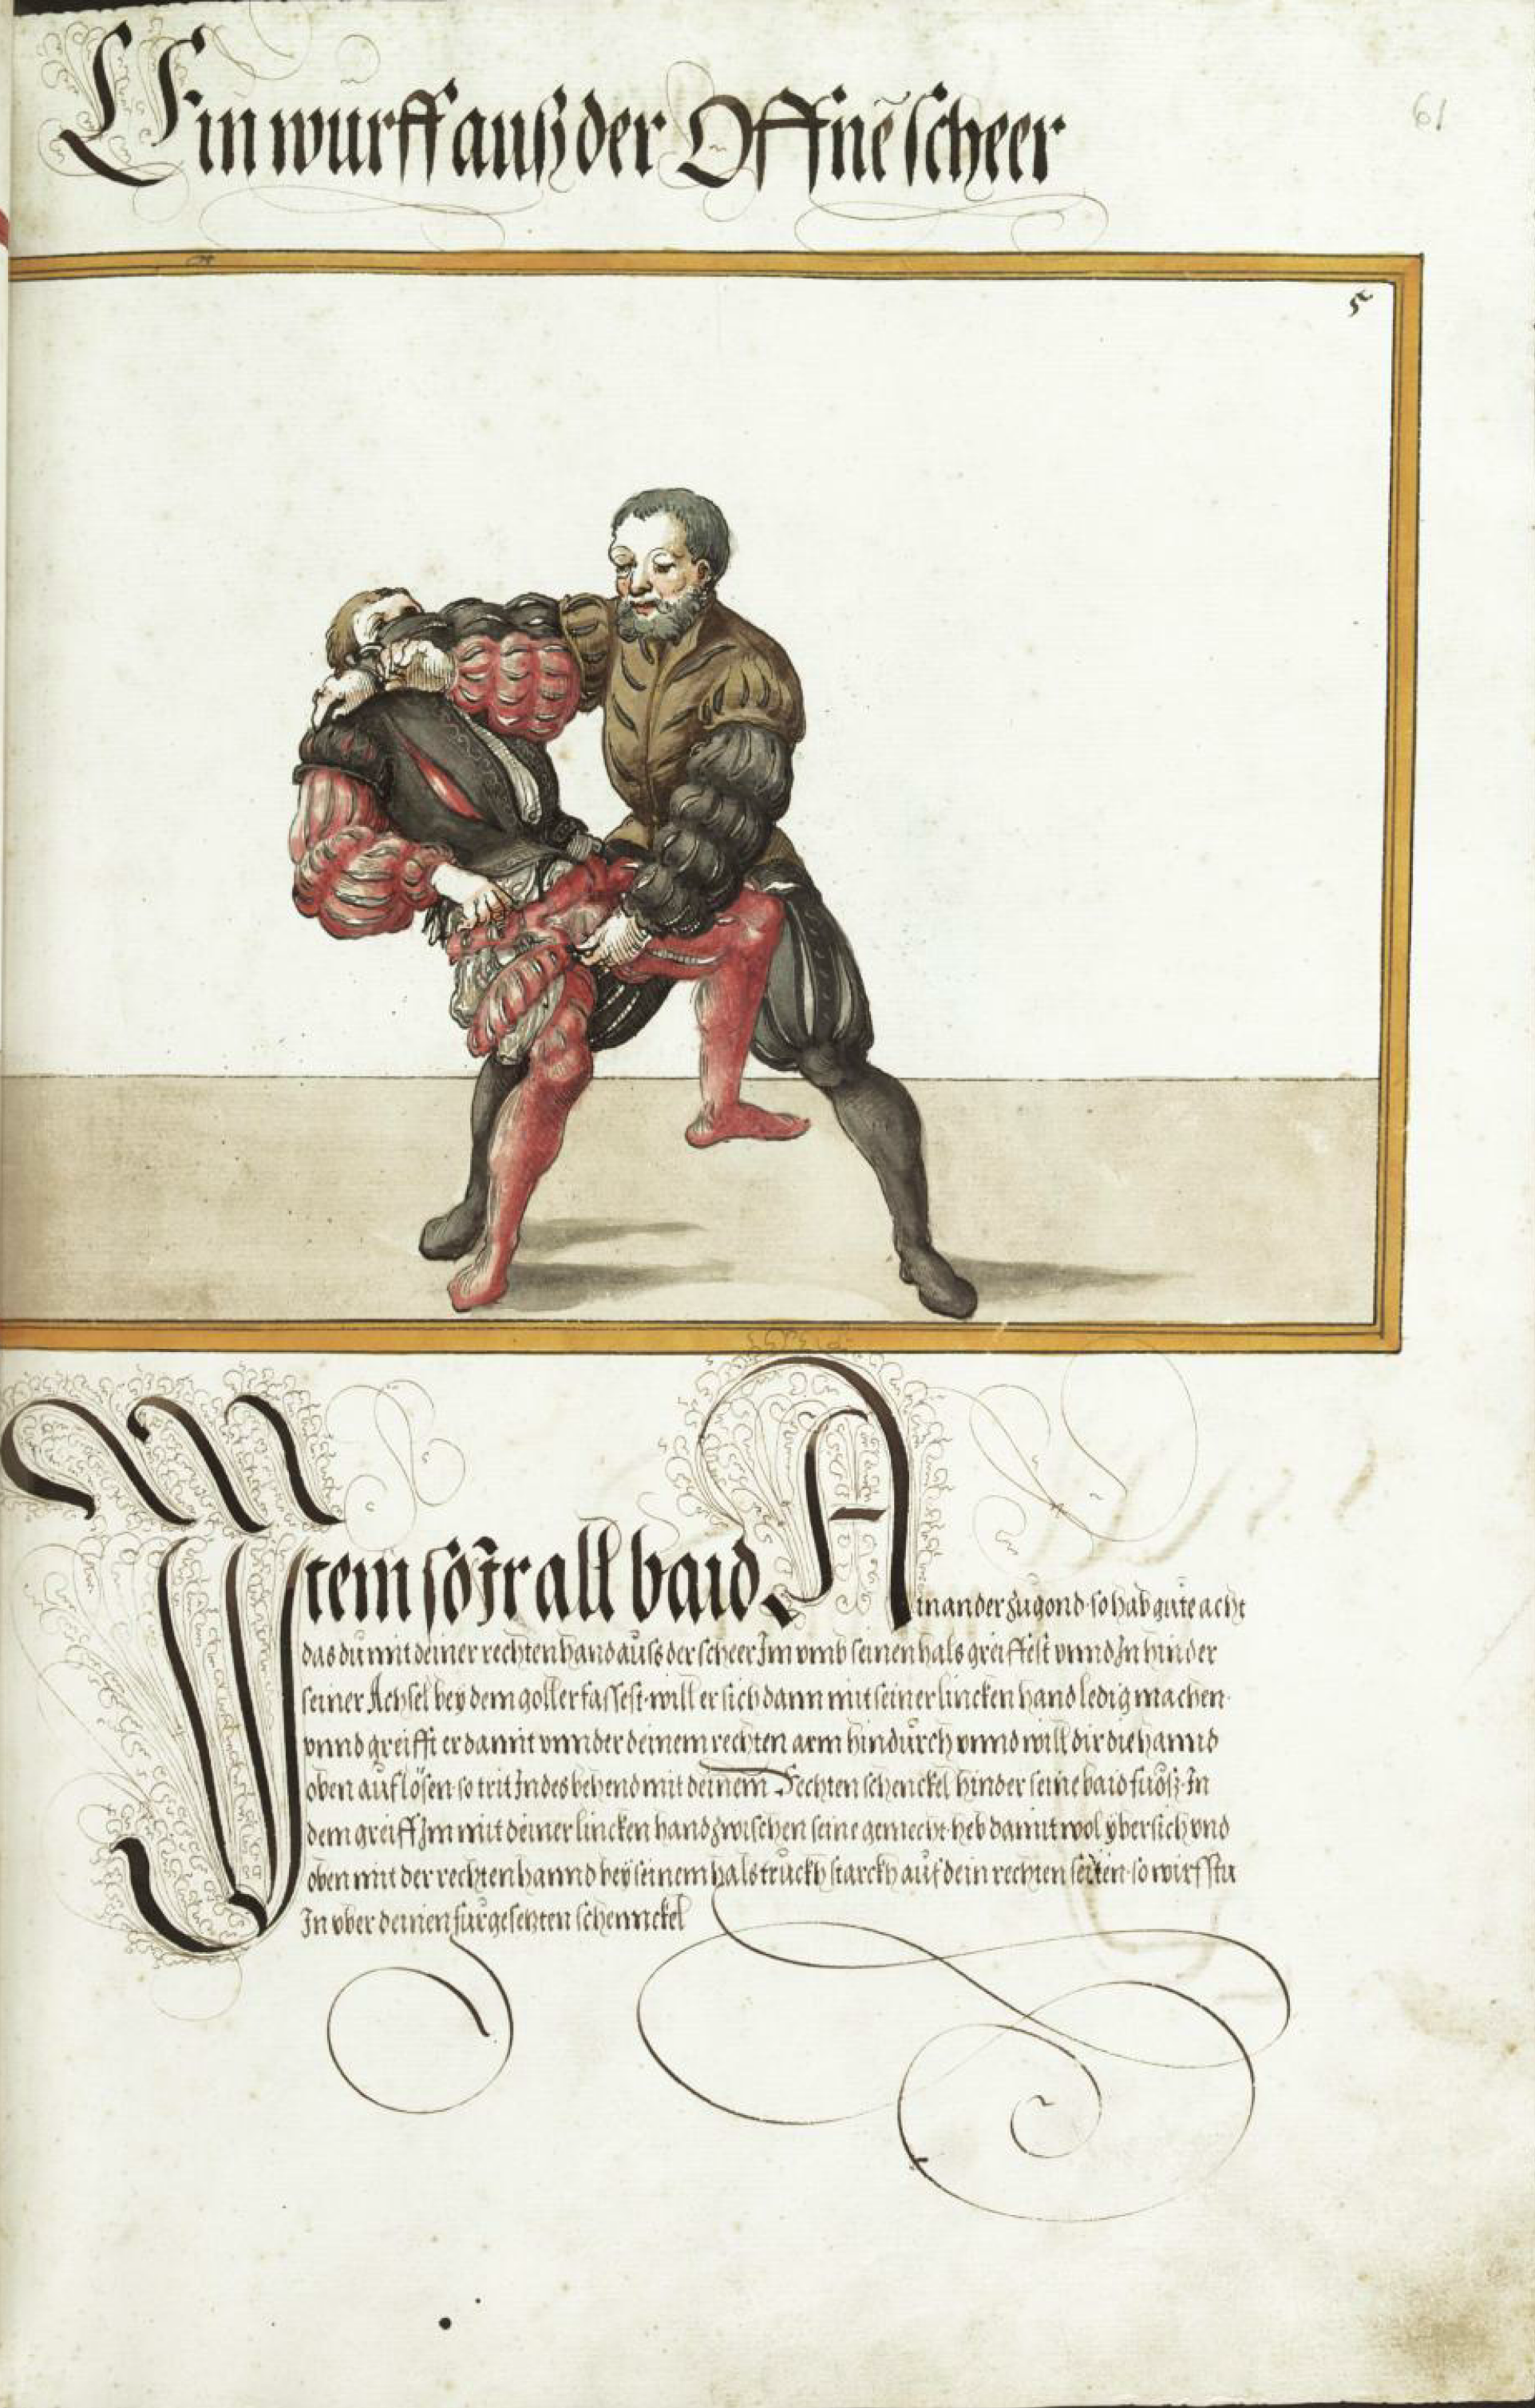 Ein wurff auß der Offnē scheer
61
52
Item so Ir all baid Ainander zůgond · so hab gůte acht
das du mit deiner rechten hand auss der scheer Im vmb seinen hals greiffest vnnd In hinder
seiner Achsel bey dem goller fassest · will er sich dann mit seiner lincken hand ledig machen ·
vnnd greifft er damit vnnder deinem rechten arm hindurch vnnd will dir die hannd
oben auf lösen · so trit Indes behend mit deinem Rechten schenckel hinder seine baid fuoß · In
dem greiff Im mit deiner lincken hand zwischen seine gemecht · heb damit wol ybersich vnd
oben mit der rechten hannd bey seinem hals truckh starckh auf dein rechten seiten · so wirfstu
In vber deinen fürgesetzten schennckel